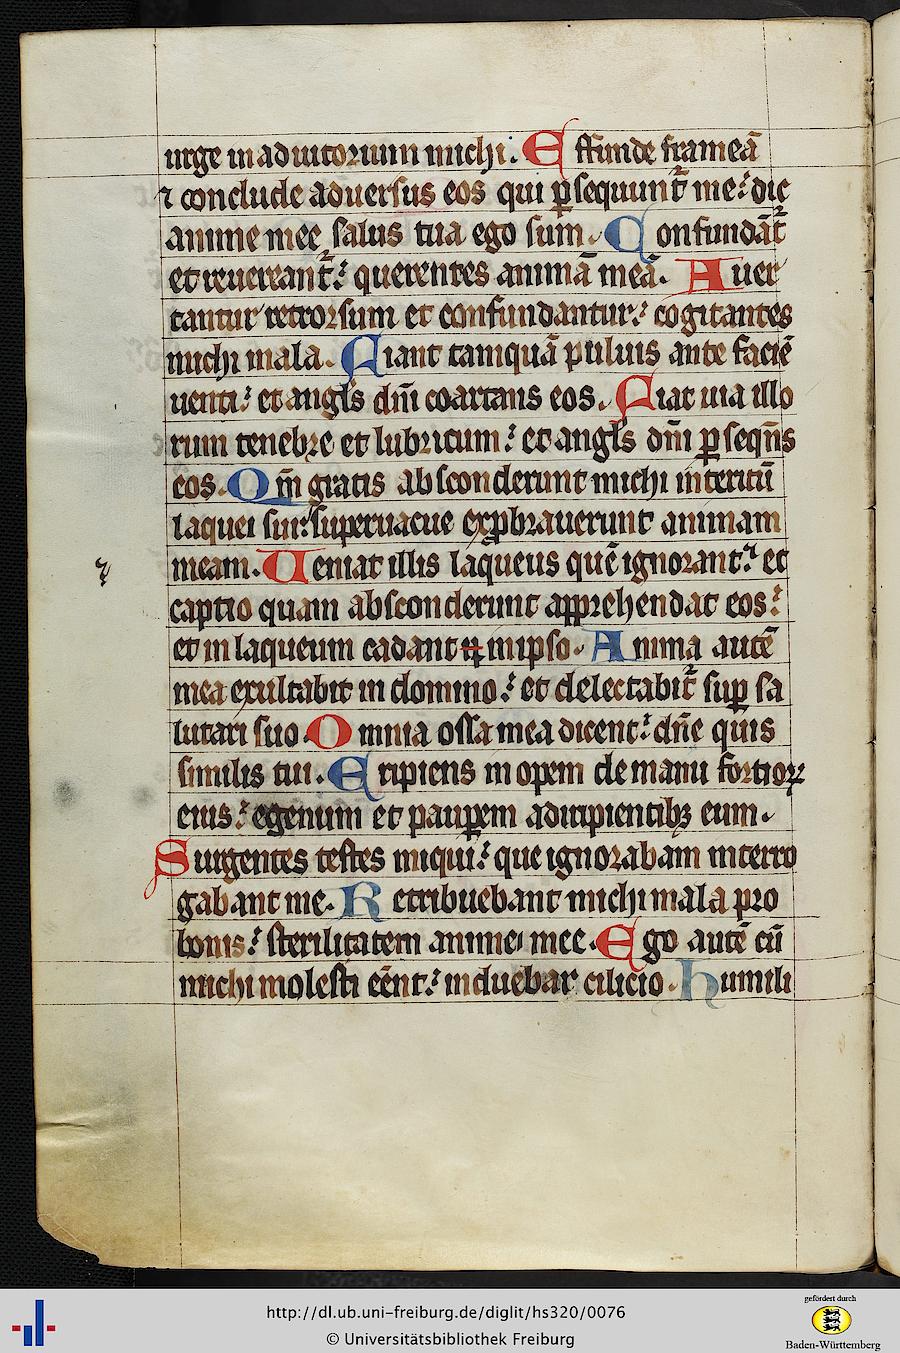 urge in adiutorium michi. Effunde frameā
⁊ conclude aduersus eos qui ꝑsequunt᷑ me: dic
anime mee salus tua ego sum. Confundāt᷑
et reuereant᷑: querentes animā meā. Auer
tantur retrorsum et confundantur: cogitantes
michi mala. Fiant tamquā puluis ante faciē
uenti: et angl's dn̄i coartans eos. Fiat uia illo
rum tenebre et lubricum: et angl's dn̄i ꝑseqn̄s
eos. Qm̄ gratis absconderunt michi interitū
laquei sui: superuacue exꝓbrauerunt animam
meam. Ueniat illis laqueus quē ignorant: et
captio quam absconderunt apprehendat eos:
et in laqueum cadant in ipso. Anima autē
mea exultabit in domino: et delectabit᷑ suꝑ sa
lutari suo. Omnia ossa mea dicent: dn̄e quis
similis tui. Eripiens inopem de manu fortioꝝ
eius: egenum et pauꝑem a diripientibꝫ eum.
Surgentes testes iniqui: que ignorabam interro
gabant me. Retribuebant michi mala pro
bonis: sterilitatem anime mee. Ego autē cū
michi molesti eēnt: induebar cilicio. Humili
http://dl.ub.uni-freiburg.de/diglit/hs320/0076
© Universitätsbibliothek Freiburg
gefördert durch
Baden-Württemberg